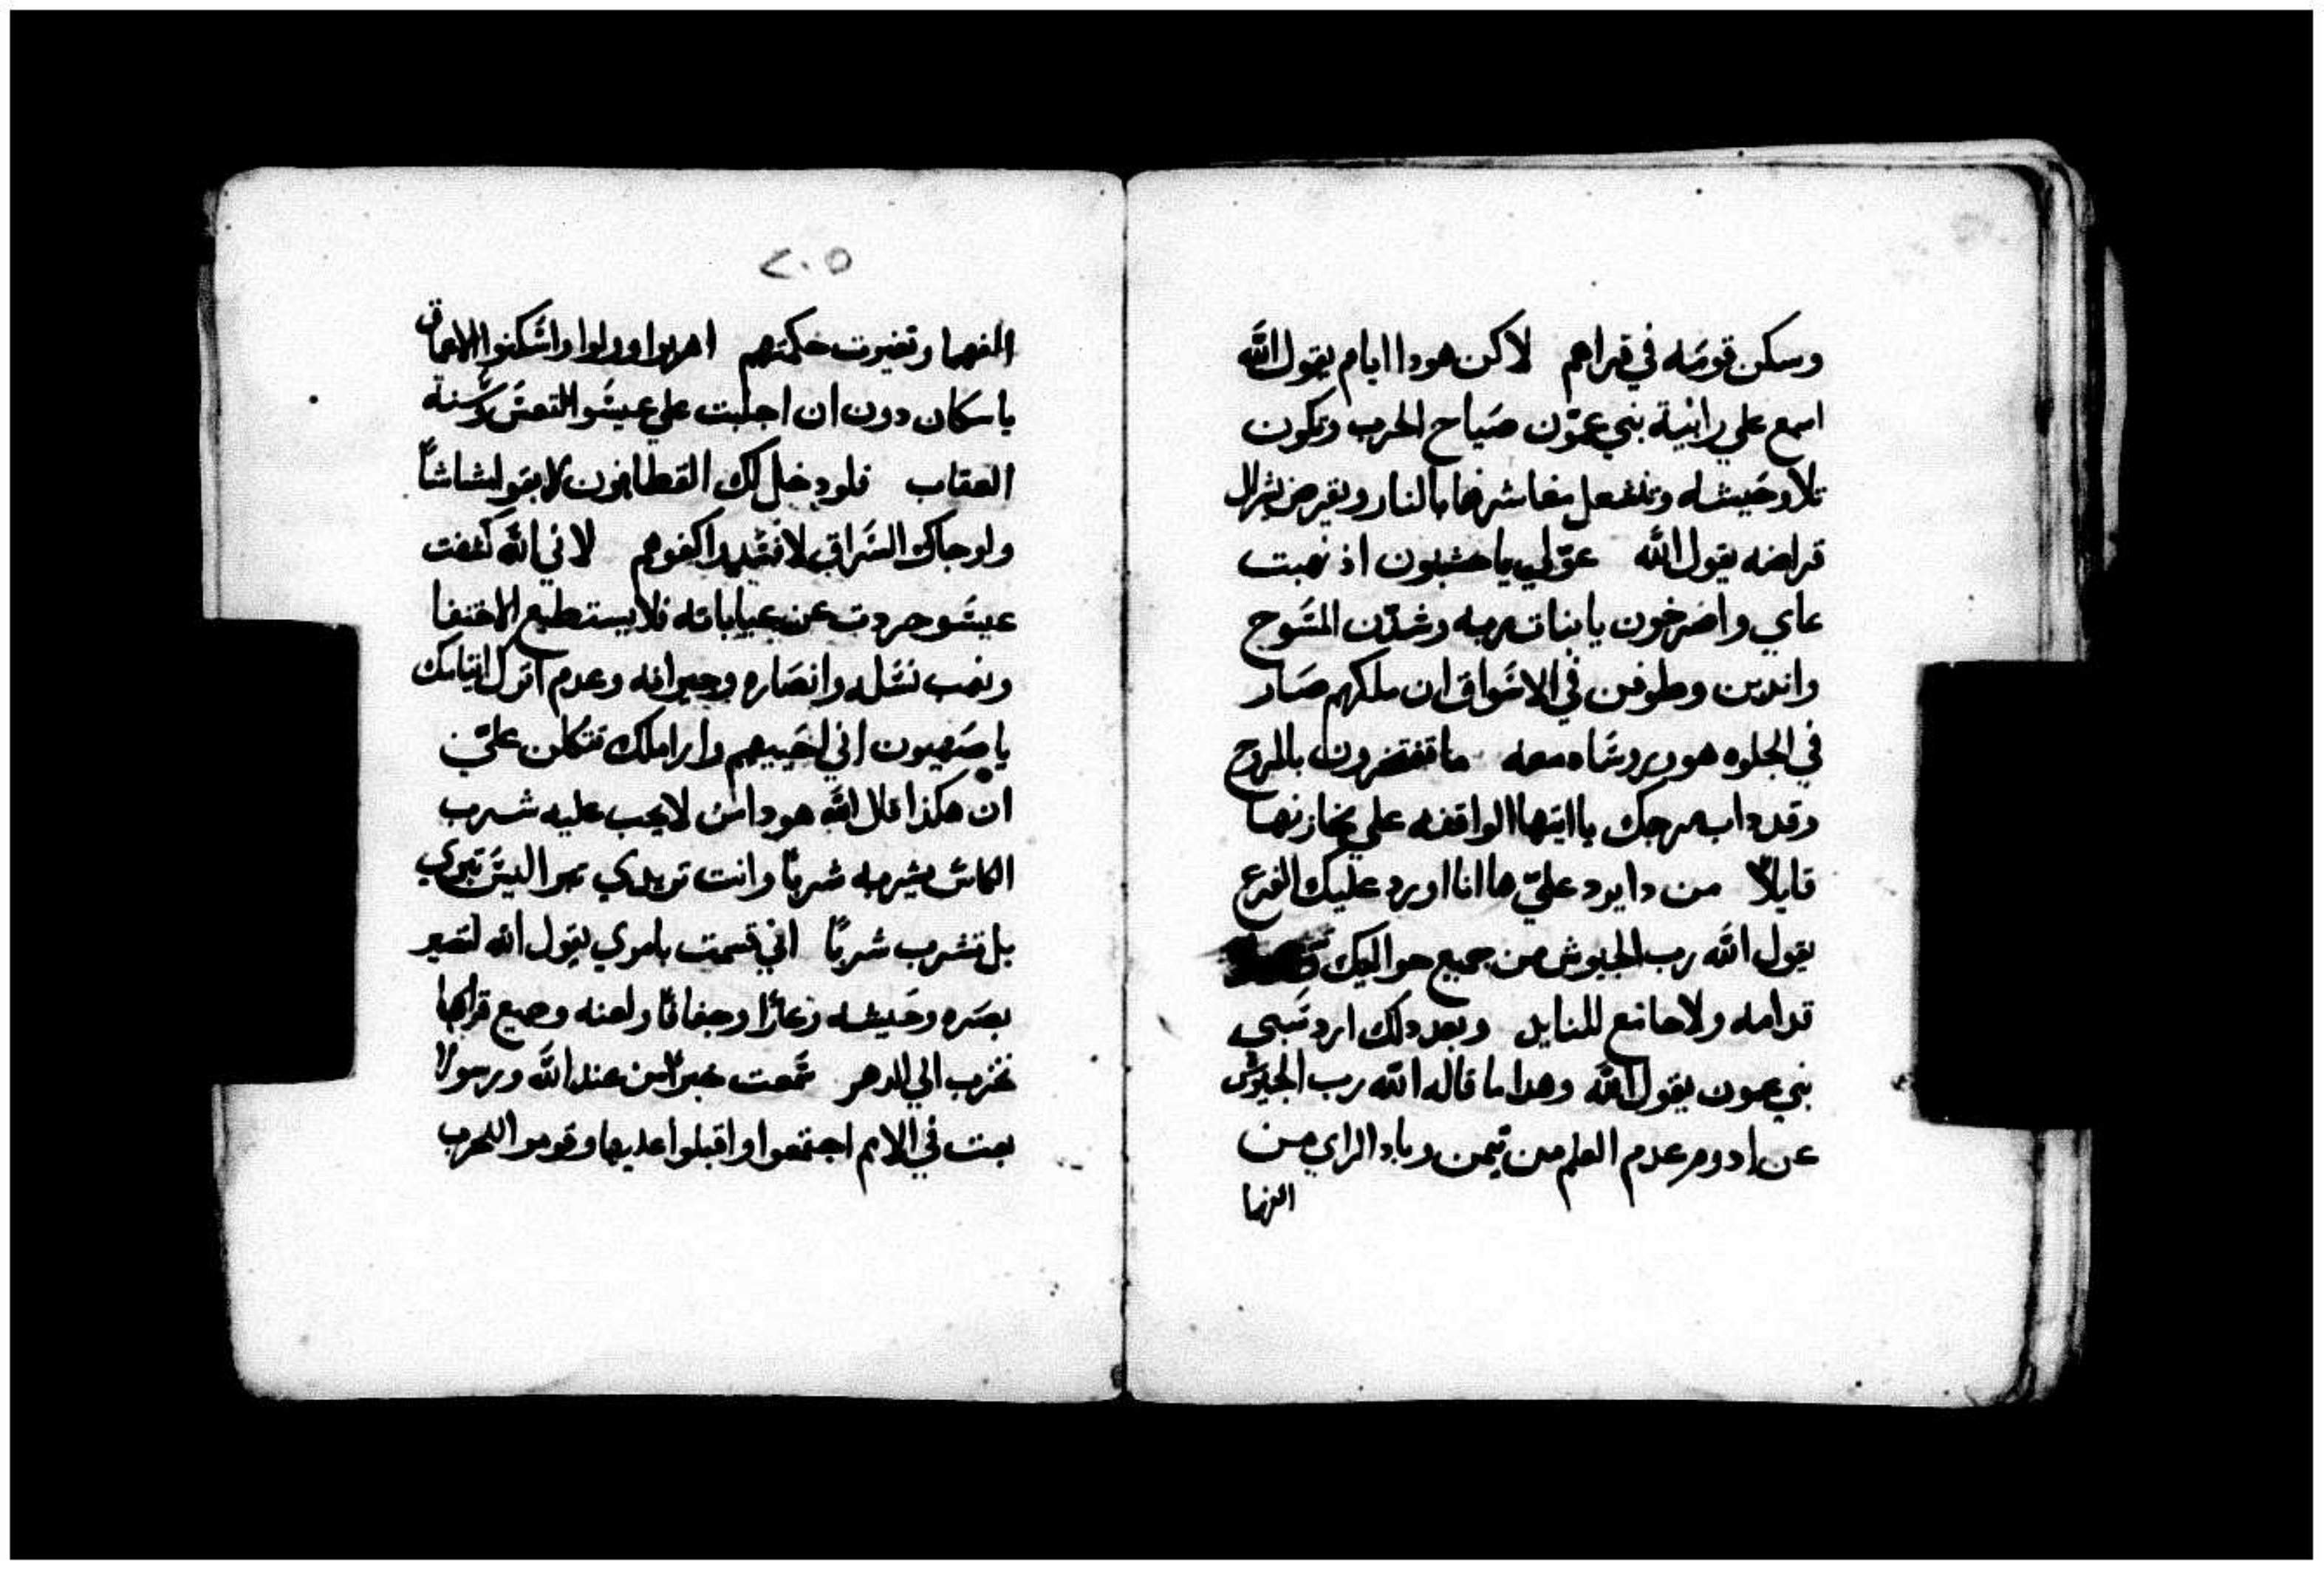 وسكن قومه في قراهم لاكن هودا ايام يقول الله
اسمع علي رانية بني عمّون صياح الحرب وتكون
تلا وحيشه وتشعل مفاشرها بالنار ويقرض يشرال
قراضه يقول الله عوّلي يا حشبون اذ نهبت
عاي واصرخون يا بنات ربه وشدّن المسوح
واندبن وطوفن في الاسواق ان ملكهم صار
في الجلوه هو وروساه معه ما تفتخرون بالمروج
وقد داب مرجك يا ايتها الواقفه علي مخازنها
قايلاً من دا يرد عليّ ها انا اورد عليك الفزع
يقول الله رب الجيوش من جميع حواليك
قدامه ولا مانع للنايد وبعد دلك ارد سبي
بني عمون يقول الله وهدا ما قاله الله رب الجيوش
عن ادوم عدم العلم من تيمن وباد الراي من
الفهما
٢٠٥
الفهما وتغيرت حكمتهم اهربوا وولوا واسكنوا الاعماق
يا سكان دون ان اجلبت علي عيسو التعس وسنة
العقاب فلو دخل لك القطافون لا بقوا لشاشاً
ولو جاك السراق لافسدوا كفوهم لاني الله كشفت
عيسو جردت عن عياباته فلا يستطيع الاختفا
ونهب نسله وانصاره وجيرانه وعدم اترك ايتامك
يا صهيون اني احييهم وارا ملك تتكلن عليّ
ان هكذا قال الله هودا من لا يجب عليه شرب
الكاس يشربه شرباً وانت تريدي تبرا ليس تبري
بل تشرب شرباً اني قسمت بامري يقول الله لتصير
بصره وحيشه زعاراً وجفافاً ولعنه وجميع قراها
تخرب الي الدهر سمعت خبراً من عند الله ورسولا
بعت في الامم اجتمعوا واقبلوا عليها وقوموا للحرب